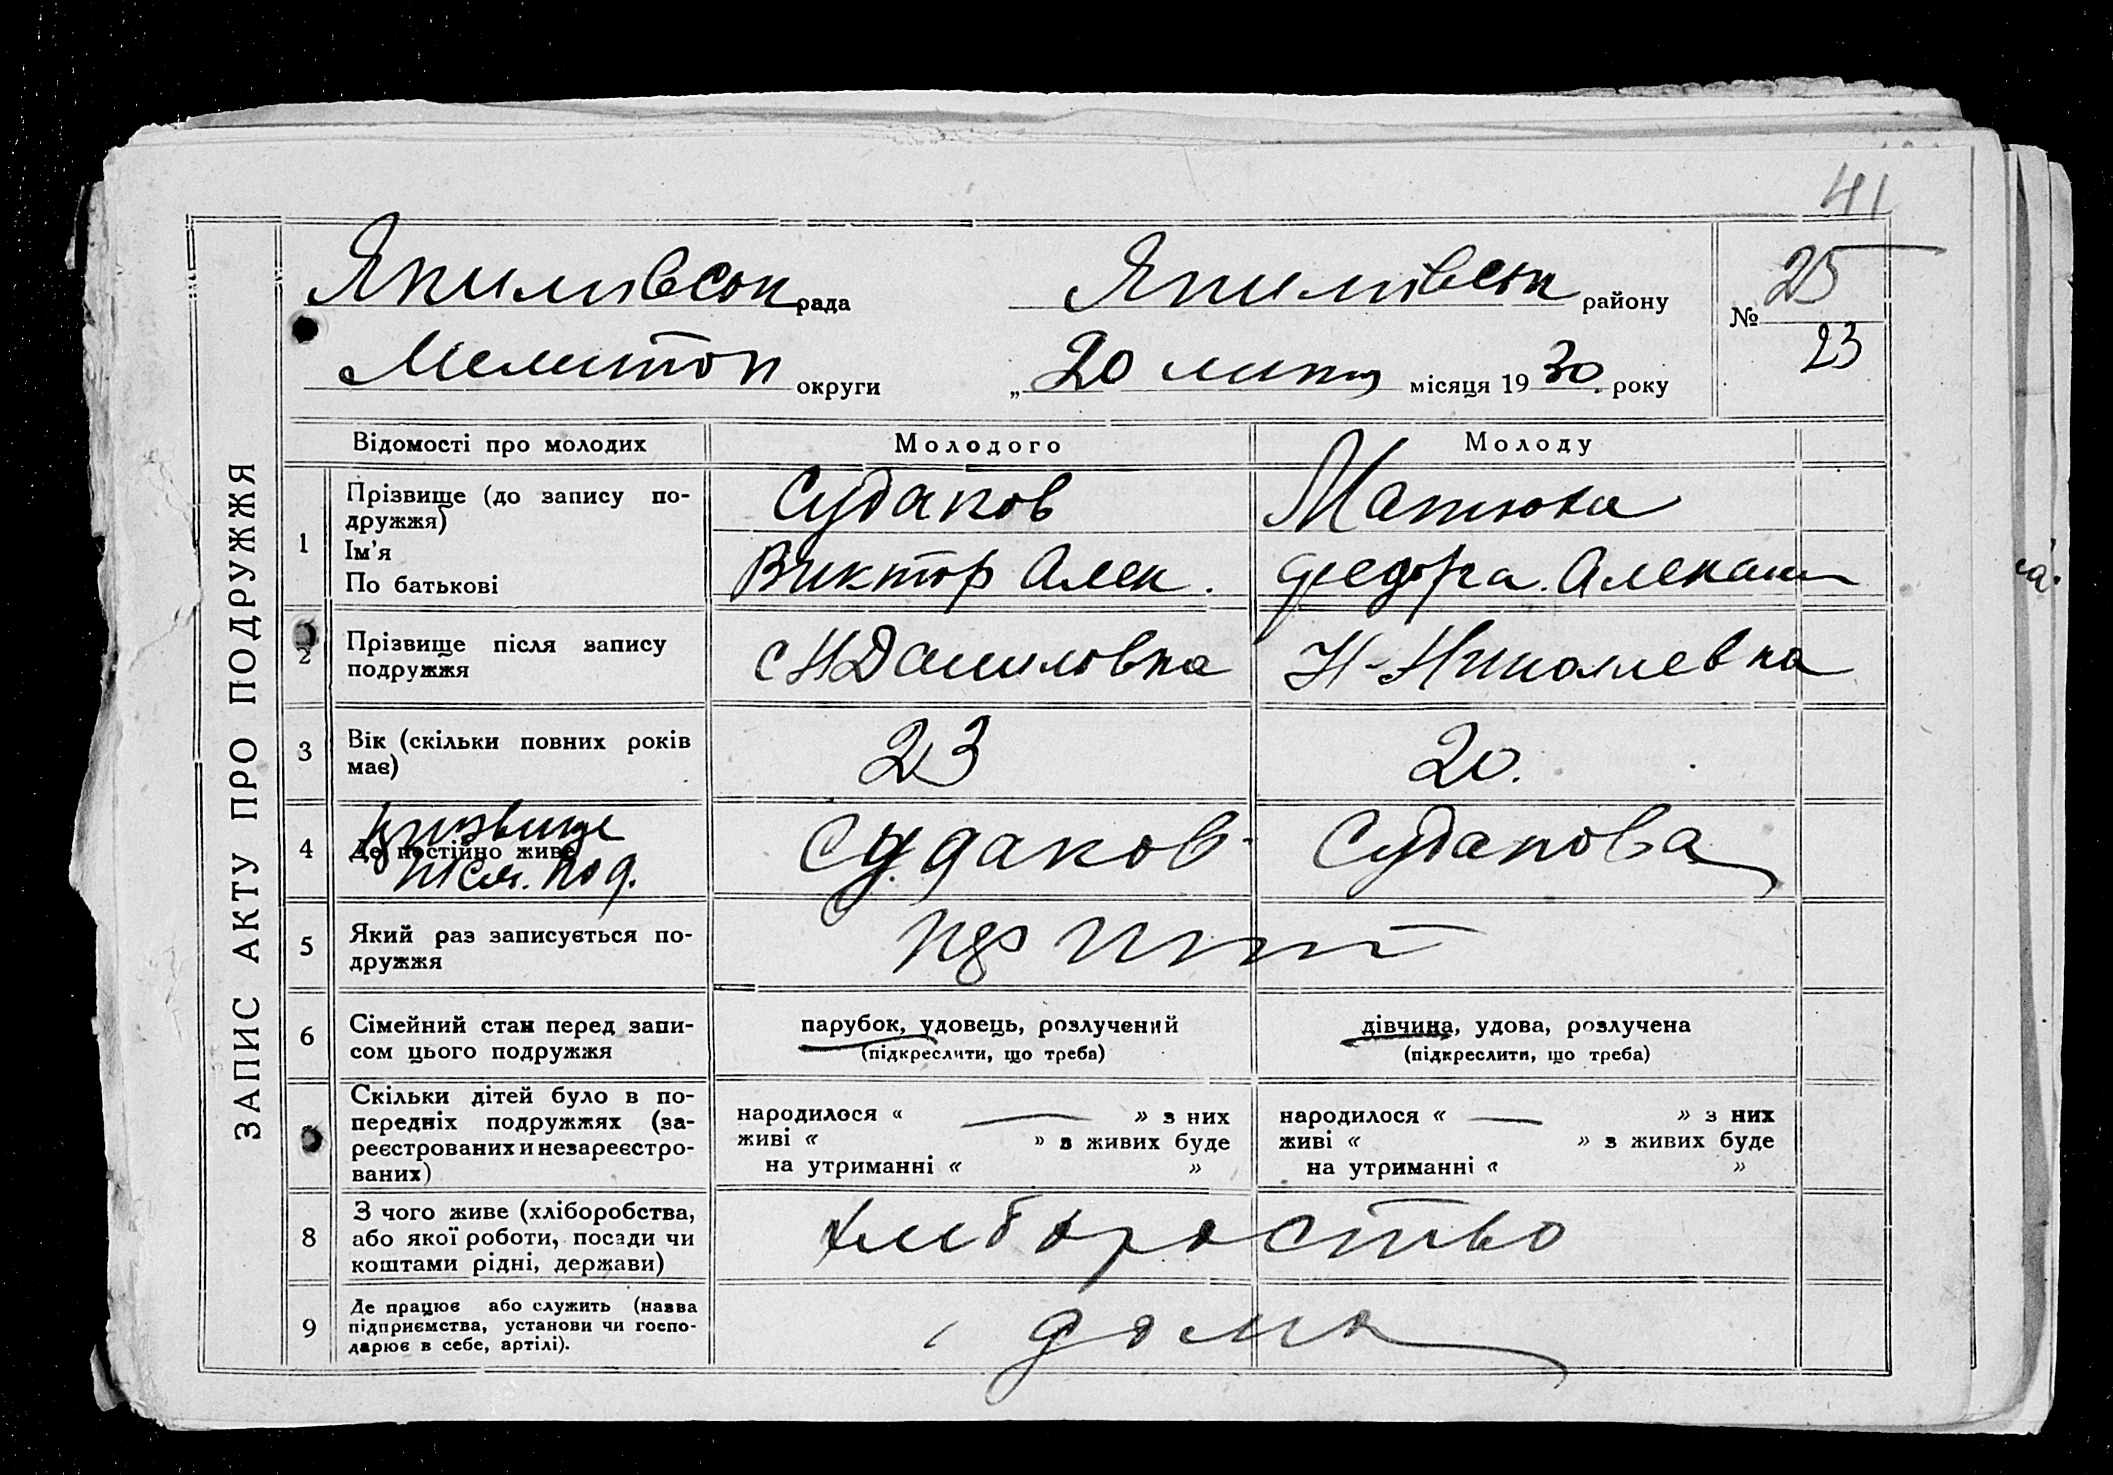 41
Якимівськ рада Якимівськ району № 25
Мелитоп округи „ 20 липц місяця 19 30 року 23
ЗАПИС АКТУ ПРО ПОДРУЖЖЯ
Відомості про молодих Молодого Молоду
1 Прізвище (до запису по-
дружжя) Судаков Матюха
Ім'я
По батькові Виктор Алек. Федора Алексан
2 Прізвище після запису
подружжя с Н Даниловка Н-Николаевка
3 Вік (скільки повних років
має) 23 20.
4 Де постійно живе
призвище
писл. под. Судаков Судакова
5 Який раз записується по-
дружжя
6 Сімейний стан перед запи-
сом цього подружжя
парубок, удовець, розлучений
(підкреслити, що треба)
дівчина, удова, розлучена
(підкреслити, що треба)
Скільки дітей було в по-
передніх подружжях (за-
реєстрованих и незареєстро-
ваних)
народилося « — » з них
живі « » з живих буде
на утриманні « »
народилося « — » з них
живі « » з живих буде
на утриманні « »
8 З чого живе (хліборобства,
або якої роботи, посади чи
коштами рідні, держави)
хлибороство
9 Де працює або служить (назва
підприємства, установи чи госпо-
дарює в себе, артілі).
дома